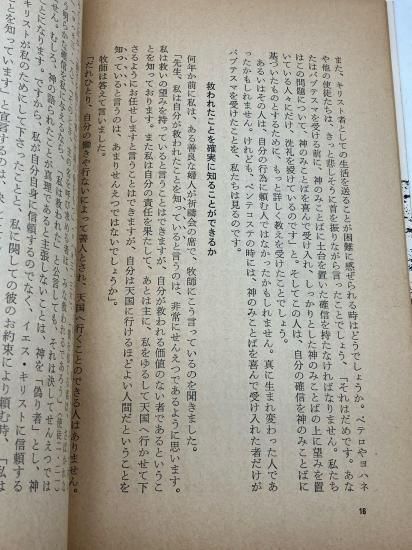 また、キリスト者としての生活を送ることが困難に感ぜられる時はどうでしょうか。ペテロやヨハネ
や他の使徒たちは、きっと悲しそうに首を振りながら言ったことでしょう、「それはだめです。あな
たはバプテスマを受ける前に、神のみことばに土台を置いた確信を持たなければなりません。私たち
はこの問題について、神のみことばを喜んで受け入れ、しっかりとした神のみことばの上に望みを置
いている人々にだけ、洗礼を授けているのです」と。そしてこの人は、自分の確信を神のみことばに
基づいたものとするために、もっと詳しく教えを受けたことでしょう。
あるいはその人は、自分の行為に頼む人ではなかったかもしれません。真に生まれ変わった人であ
ったかもしれません。けれども、ペンテコステの時には、神のみことばを喜んで受け入れた者だけが
バプテスマを受けたことを、私たちは見るのです。
救われたことを確実に知ることができるか
何年か前に私は、ある善良な婦人が祈禱会の席で、牧師にこう言っているのを聞きました。
「先生、私は自分が救われたことを知っていると言うのは、非常にせんえつであるように思います。
私は救いの望みを持っていると言うことはできますが、自分が救われる価値のない者であるというこ
とを知っております。また私は自分の責任を果たして、あとは主に、私をゆるして天国へ行かせて下
さるようにお任せしますと言うことはできますが、自分は天国に行けるほどよい人間だということを
知っていると言うのは、あまりせんえつではないでしょうか」。
牧師は答えて言いました。
「だれひとり、自分の働きや行ないによって善人とされ、天国へ行くことのできる人はありません。
せん。むしろ、神の語られたことが真理であると主張しないことは、神を「偽り者」とし、神
になります。ですから、私が自分自身に信頼するのでなく、イエス・キリストに信頼する
キリストが私のためにして下さったことと、私に関しての彼のお約束により頼む時、「私は
ことを知っています」と宣言するのは、
16